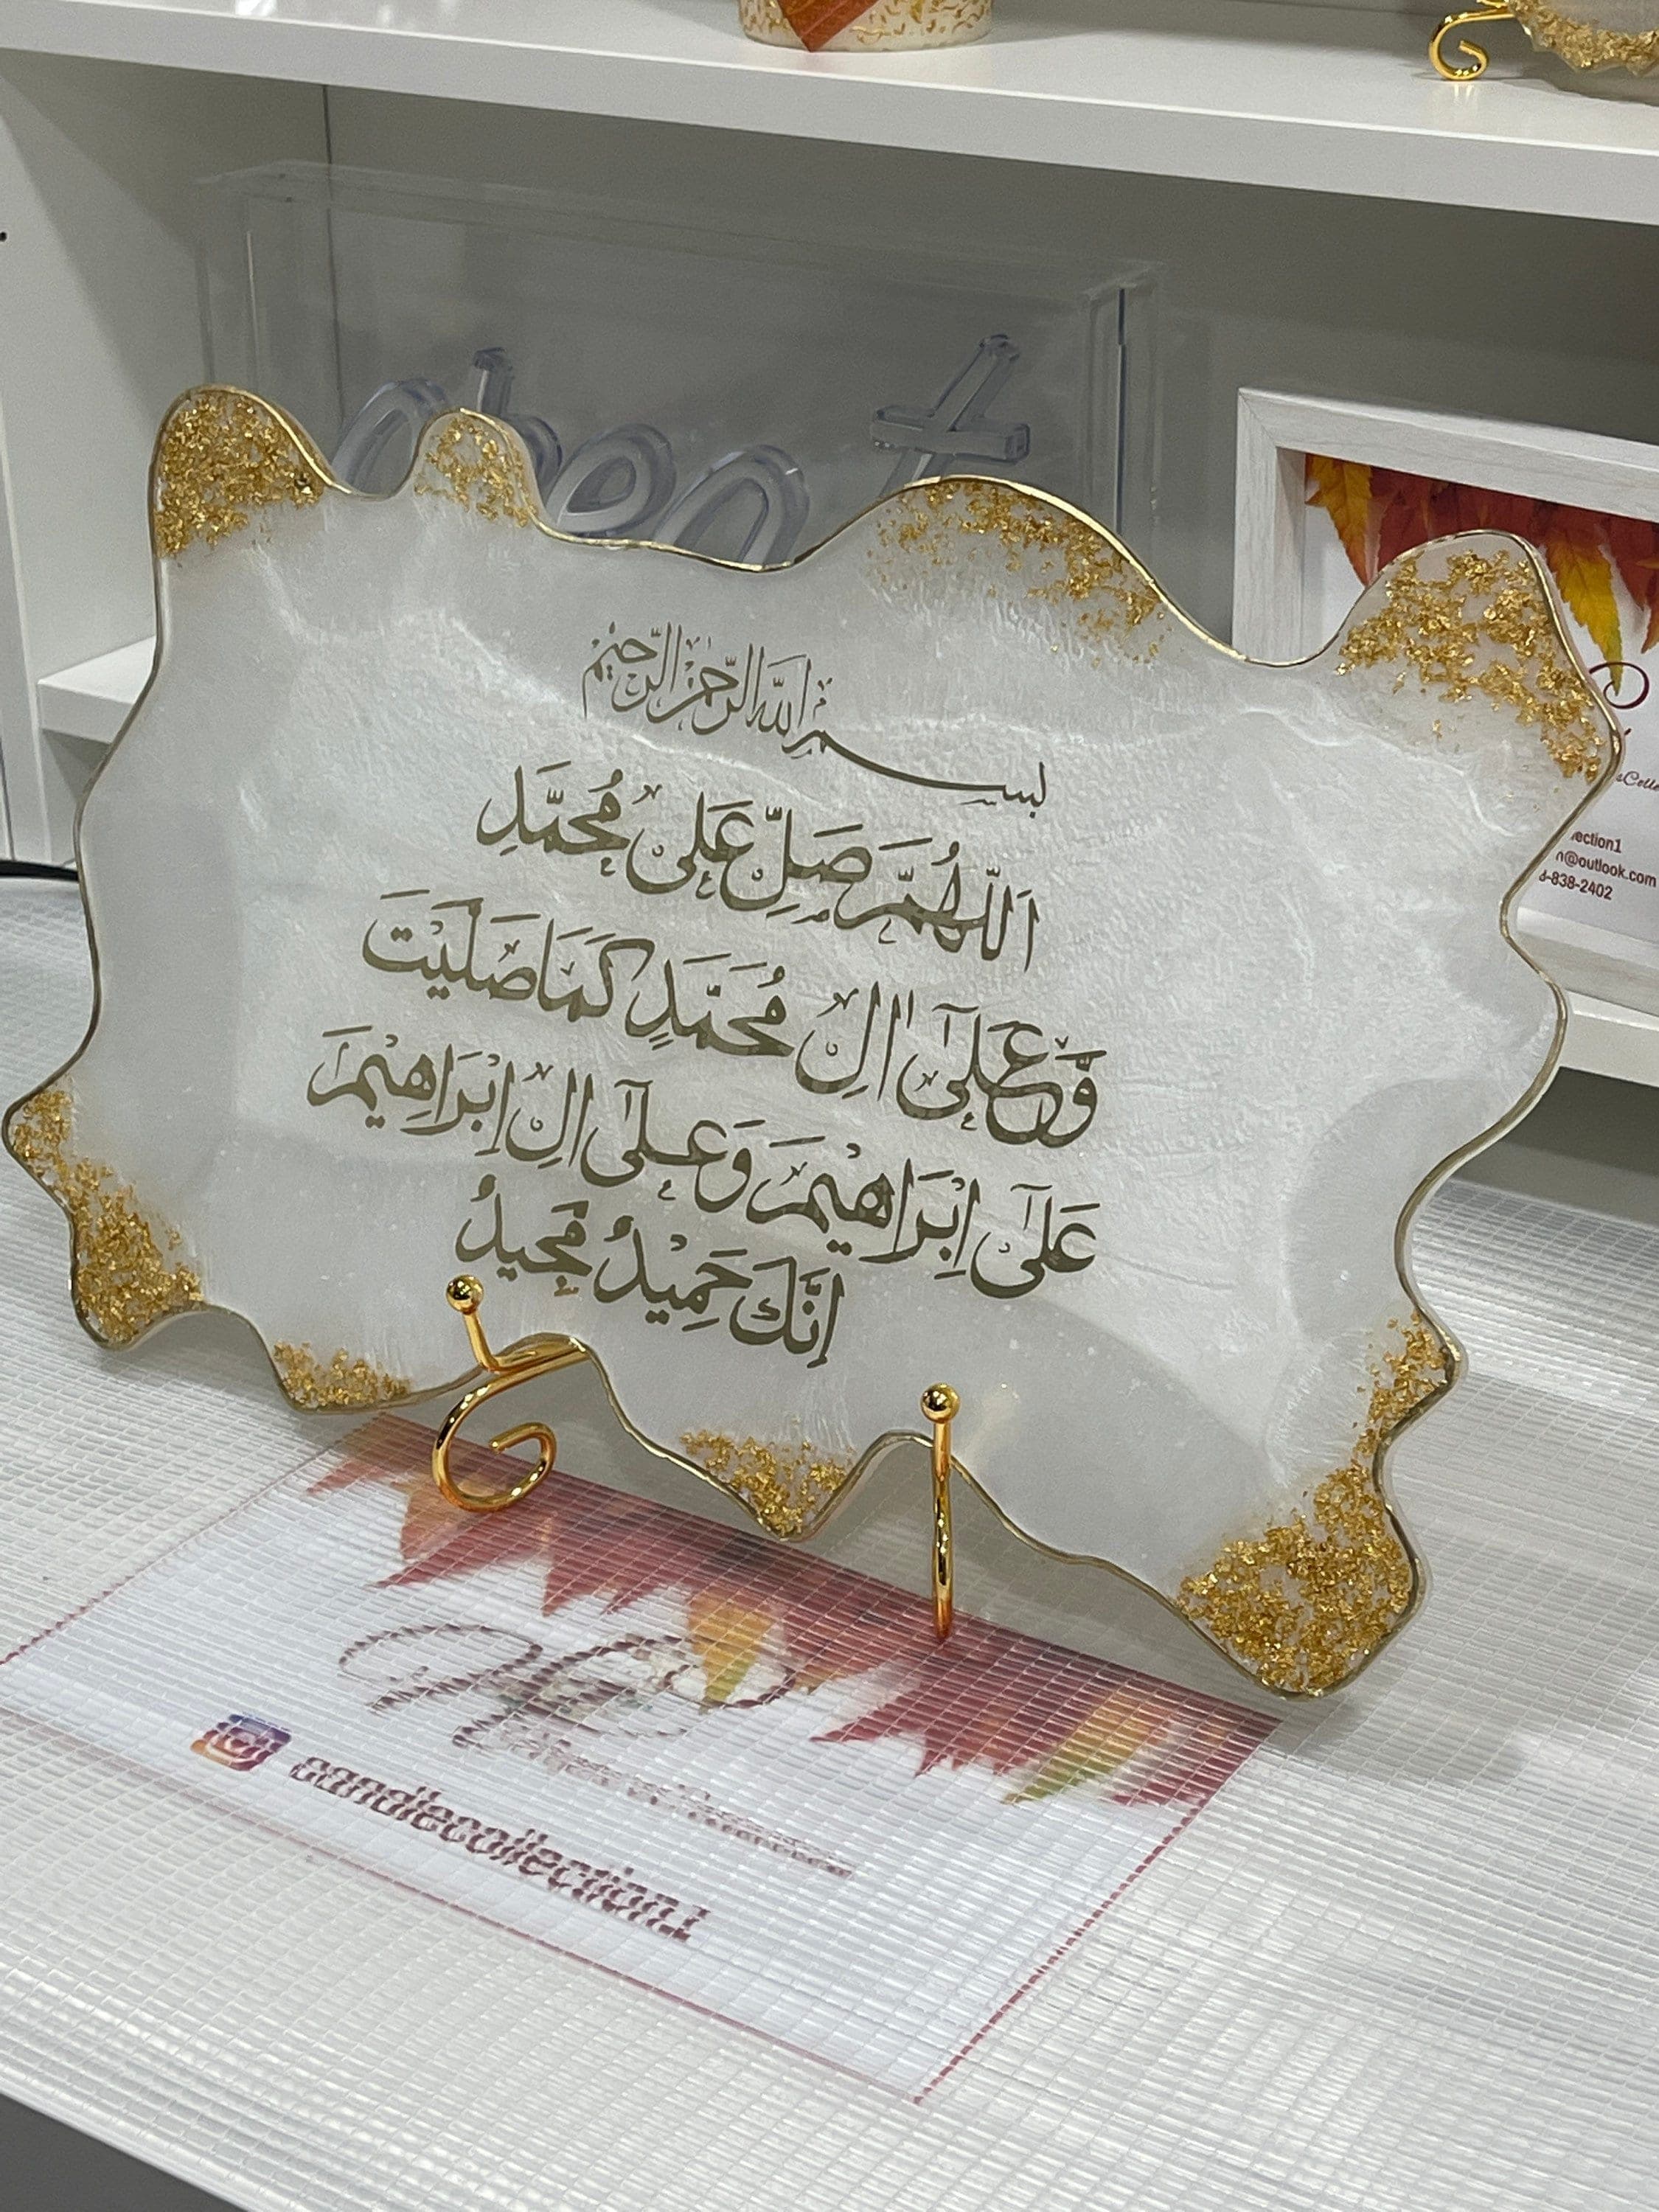 بسم الله الرحمن الرحيم
اَللّٰهُمَّ صَلِّ عَلٰى مُحَمَّدٍ
وَّعَلٰٓى اٰلِ مُحَمَّدٍ كَمَا صَلَّيْتَ
عَلٰٓى اِبْرَاهِيْمَ وَعَلٰٓى اٰلِ اِبْرَاهِيْمَ
اِنَّكَ حَمِيْدٌ مَّجِيدٌ
ection1
n@outlook.com
-838-2402